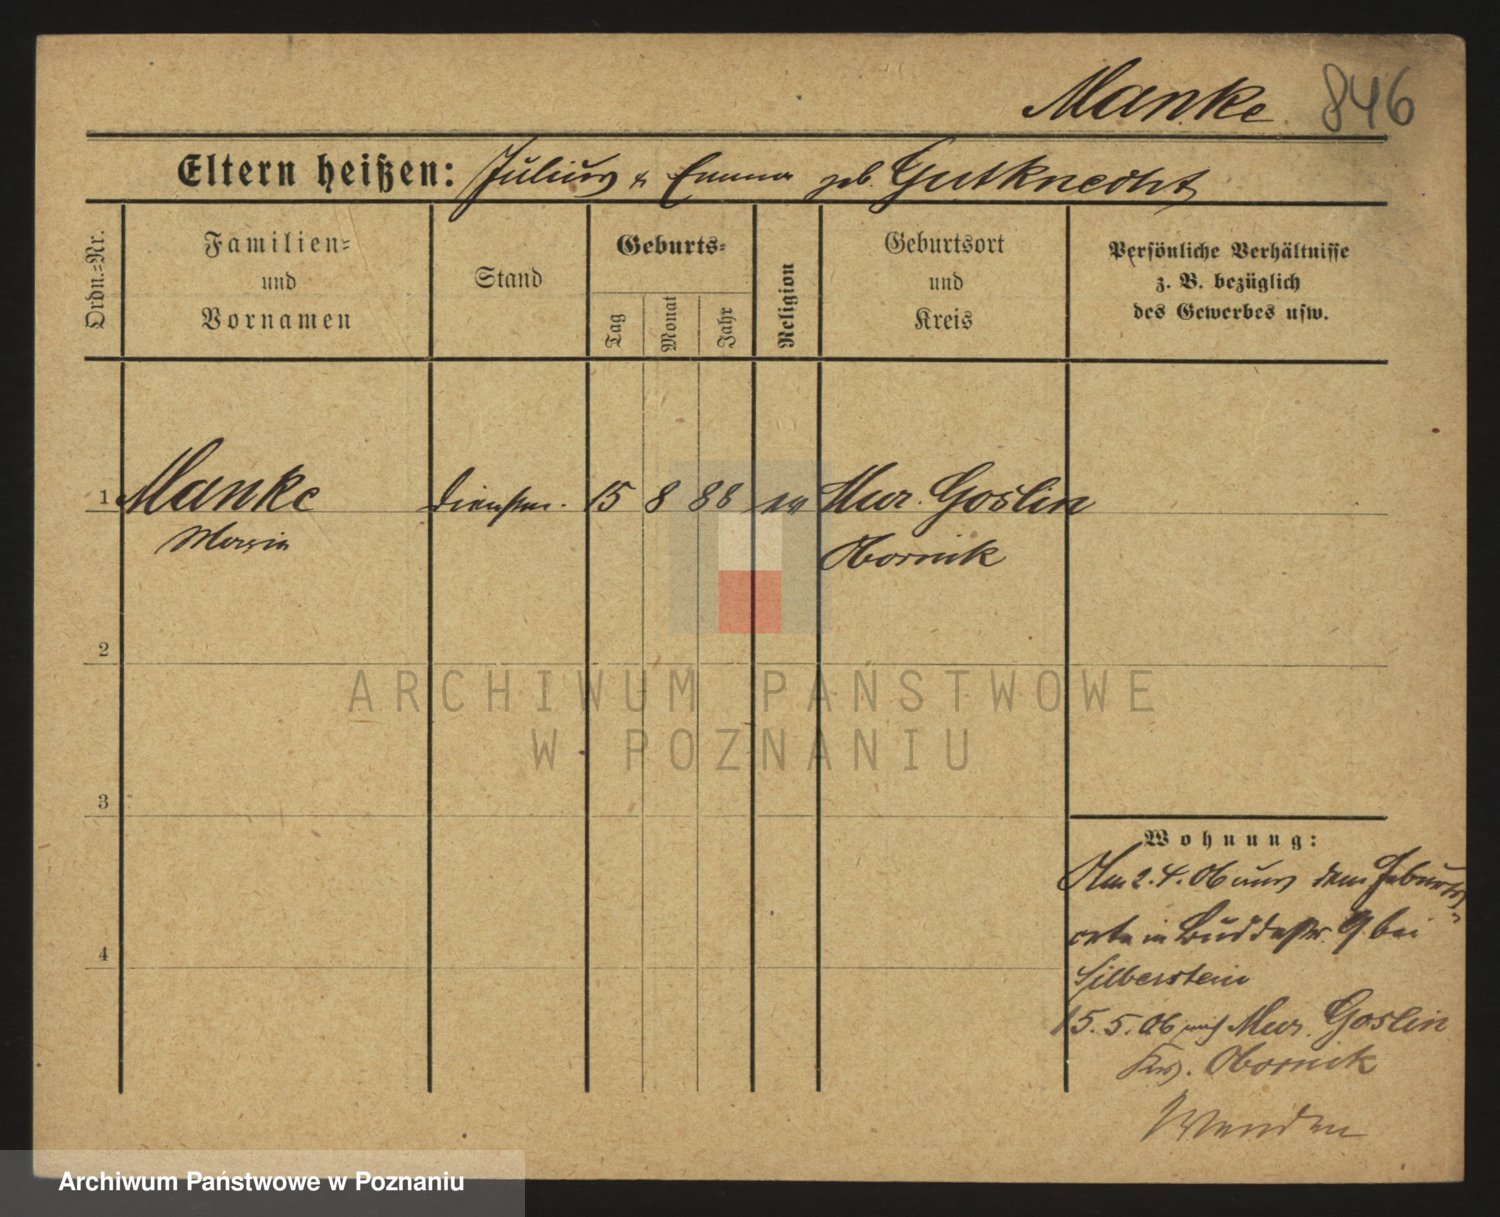 Manke 846
Eltern heißen: Julius & Emma geb. Gutknecht
Ordn.=Nr.
Familien=
und
Vornamen
Stand
Geburts=
Tag
Monat
Jahr
Religion
Geburtsort
und
Kreis
Persönliche Verhältnisse
z. B. bezüglich
des Gewerbes usw.
1 Manke Dienstm. 15 8 88 ev Mur. Goslin
Maria Obornik
2
ARCHIWUM PAŃSTWOWE
W POZNANIU
3
Wohnung:
Am 2.4.06 aus dem Geburts-
orte in Buddestr. 9 bei
4
Silberstein
15.5.06 nach Mur. Goslin
Krs. Obornik
Wenden
Archiwum Państwowe w Poznaniu